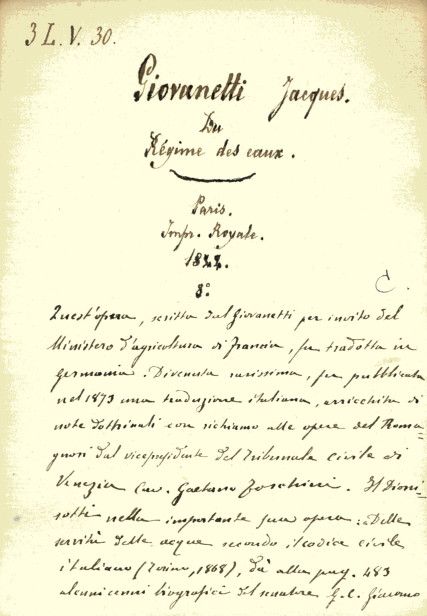 3 L. V. 30.
Giovanetti Jacques.
Du
Régime des eaux.
Paris.
Impr. Royale.
1844.
8.°
C.
Quest'opera, scritta dal Giovanetti per invito del
Ministero d'agricoltura di Francia, fu tradotta in
Germania. Divenuta rarissima, fu pubblicata
nel 1873 una traduzione italiana, arricchita di
note dottrinali con richiamo alle opere del Roma-
gnosi dal vicepresidente del Tribunale Civile di
Venezia Cav. Gaetano Foschini. Il Dioni-
sotti nella importante sua opera: "Delle
servitù delle acque secondo il codice civile
italiano (Torino, 1868), dà alla pag. 483
alcuni cenni biografici del senatore G. Giacomo